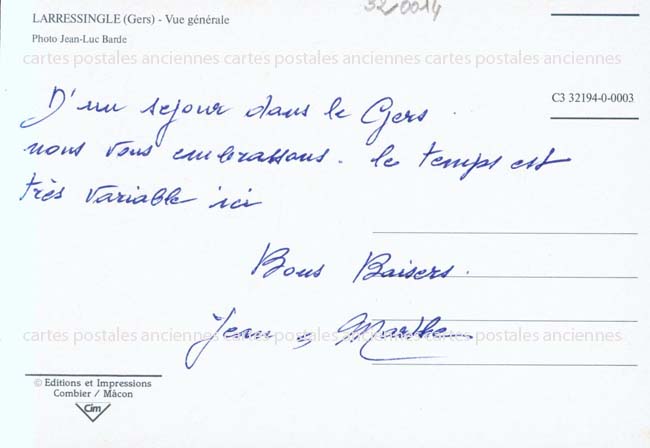 32/0014
LARRESSINGLE (Gers) - Vue générale
Photo Jean-Luc Barde
cartes postales anciennes cartes postales anciennes cartes postales anciennes
C3 32194-0-0003
D'un sejour dans le Gers.
nous vous embrassons. le temps est
très variable ici
Bons Baisers.
Jean & Marthe
cartes postales anciennes cartes postales anciennes cartes postales anciennes
© Editions et Impressions
Combier / Mâcon
Cim